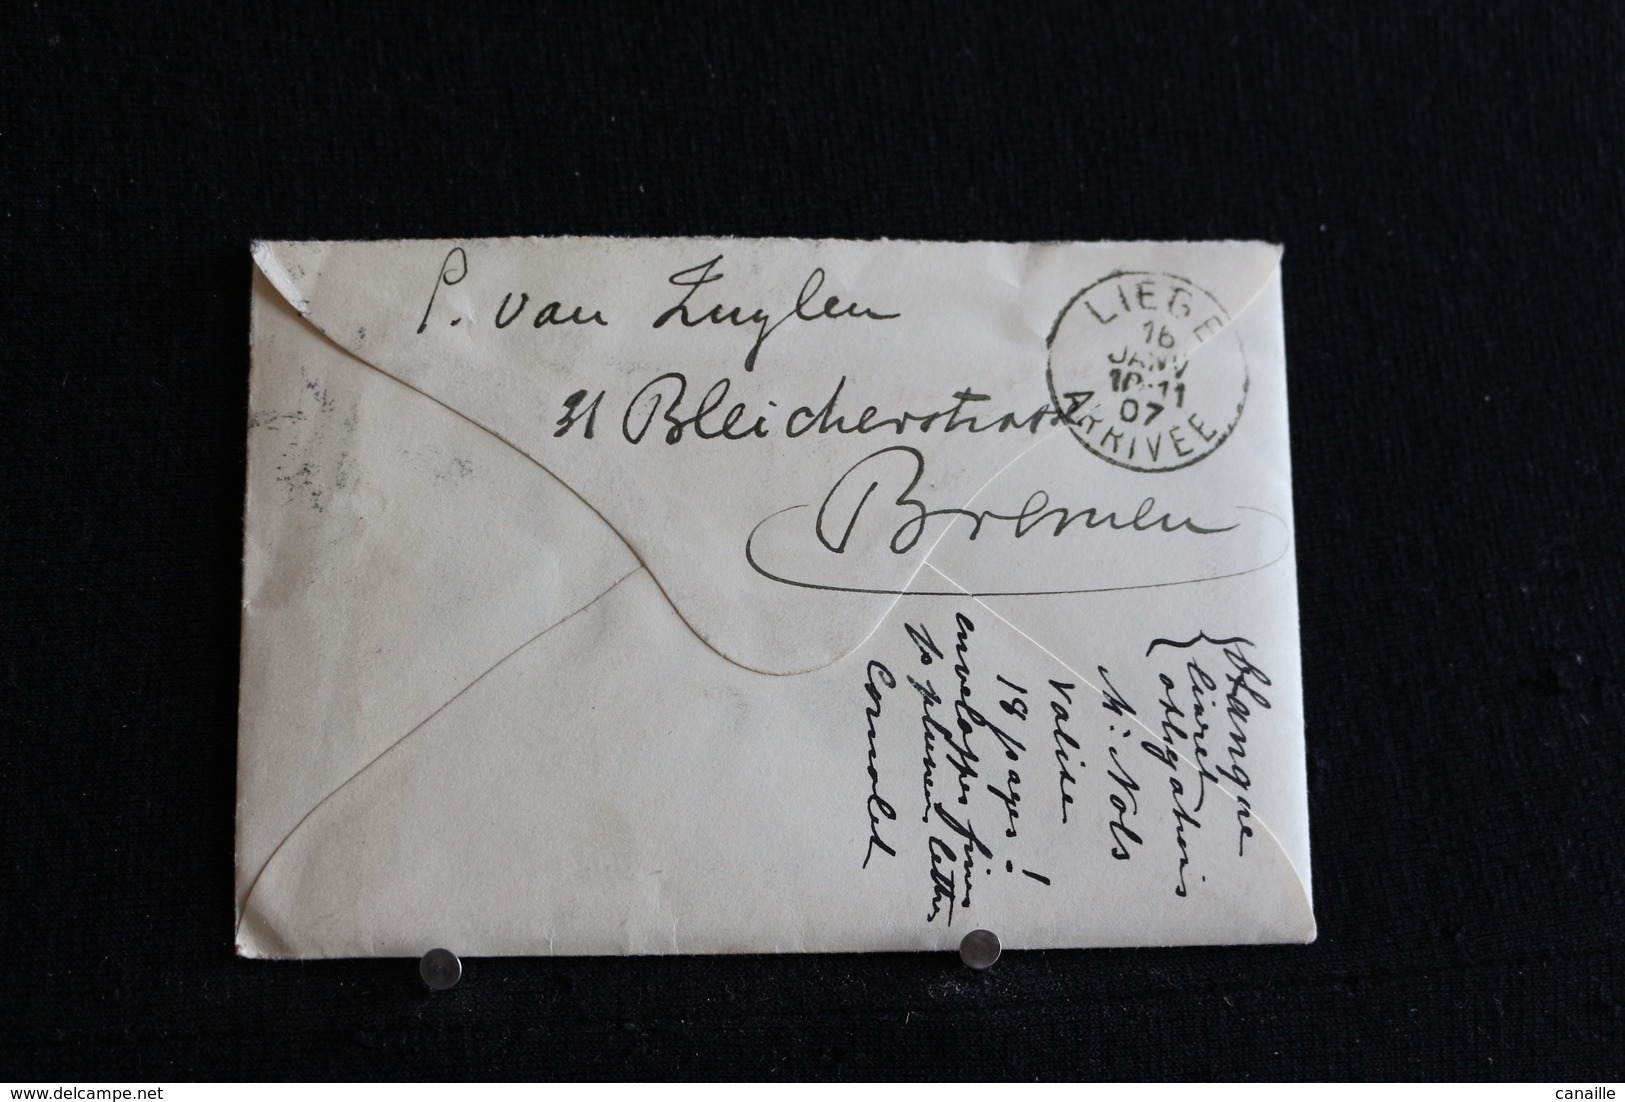 P. van Zuylen
31 Bleicherstrasse
Bremen
LIEGE
16
JANV
10-11
07
ARRIVÉE
livret
obligations
M. Nols
Valise
18 pages !
enveloppes fines
pr plusieurs lettres
Cornolet
delcampe.net
canaille